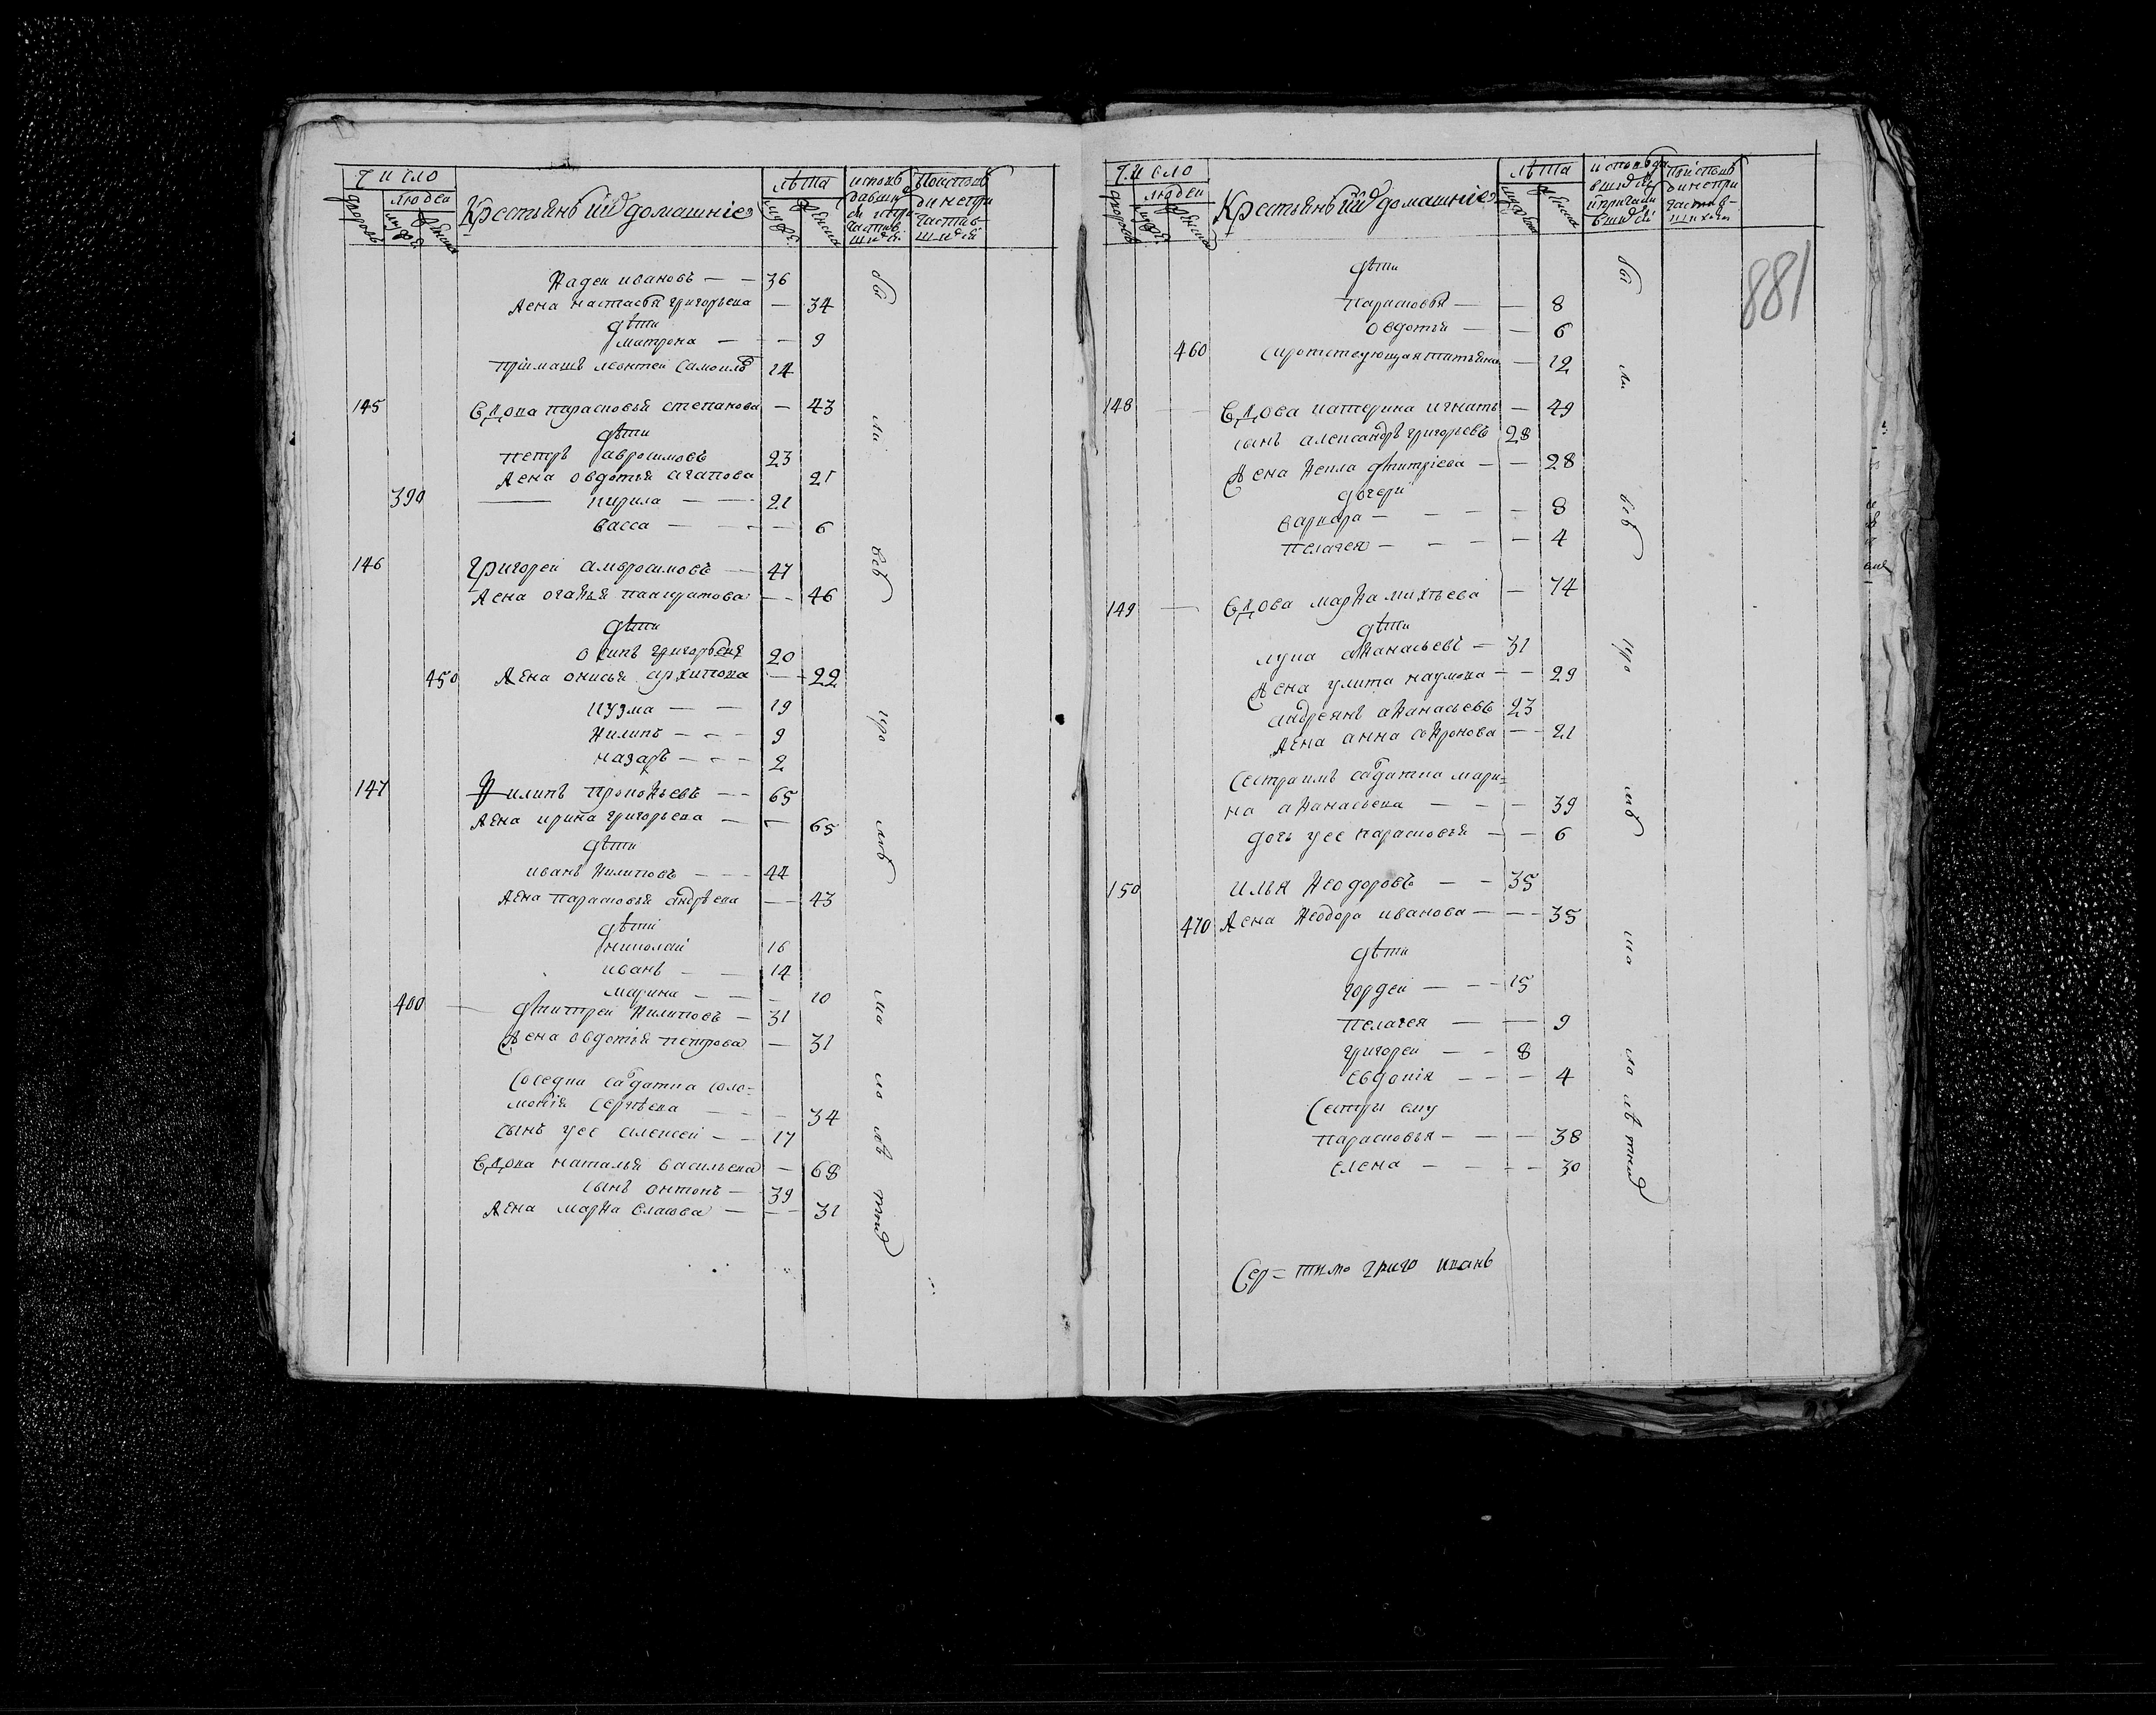 число
людеи
дворовъ
мужеска
женска
Крестьянѣ ихъ домашніе
лѣта
мужеска
женска
Фадеи ивановъ — — 36
Жена настасья григорьева — 34
дѣти
матрона — — — 9
пріимашъ леонтеи Самоиловъ 14
145 Вдова парасковья степанова — 43
дѣти
петръ авросимовъ 23
Жена овдотья агапова 21
390 кирила — — 21
васса — — — 6
146 Григореи амвросимовъ — 47
Жена огафья панкратова — — 46
дѣти
осипъ григорьевъ 20
450 Жена онисья архипова — — 22
кузма — — 19
Филипъ — — — 9
назаръ — — — 2
147 Филипъ прокофьевъ — — 65
Жена ирина григорьева — — 65
дѣти
иванъ Филиповъ — — — 44
Жена парасковья андрѣева — — 43
дѣти
николаи 16
иванъ — — 14
марина — — — 10
400 дмитреи Филиповъ — 31
Жена овдотья петрова — 31
Соседка салдатка соло=
монія Сергѣева — — — 34
сынъ уее алексеи — — 17
Вдова наталья васильева — 68
сынъ онтонъ — 39
Жена марфа власова — — — 31
бы
ли
всѣ
про
лѣ
ма
ло
лѣ
тнид
881
число
людеи
дворовъ
мужеска
женска
Крестьянѣ ихъ домашніе
лѣта
мужеска
женска
дѣти
парасковья — — 8
овдотья — — 6
460 сиротствующая татьяна — 12
148 — — Вдова катерина игнать — 49
сынъ александръ григорьевъ 28
Жена Фекла дмитріева — — 28
дочери
варвара — — — — 8
пелагея — — — — 4
149 — Вдова марфа михѣева — 74
дѣти
лука афанасьевъ — 31
Жена улита наумова — — 29
андреянъ афанасьевъ 23
Жена анна софронова — — 21
Сестра имъ салдатка мари=
на афанасьева — — — 39
дочь уее парасковья — — 6
150 илья Феодоровъ — — 35
470 Жена Феодора иванова — — — 35
дѣти
гордеи — — — 15
пелагея — — 9
григореи — — 8
евдокія — — — 4
Сестры ему
парасковья — — — 38
елена — — — 30
бы
ли
всѣ
про
ма
ло
лѣ
тнид
Сер= тимо григо иванъ